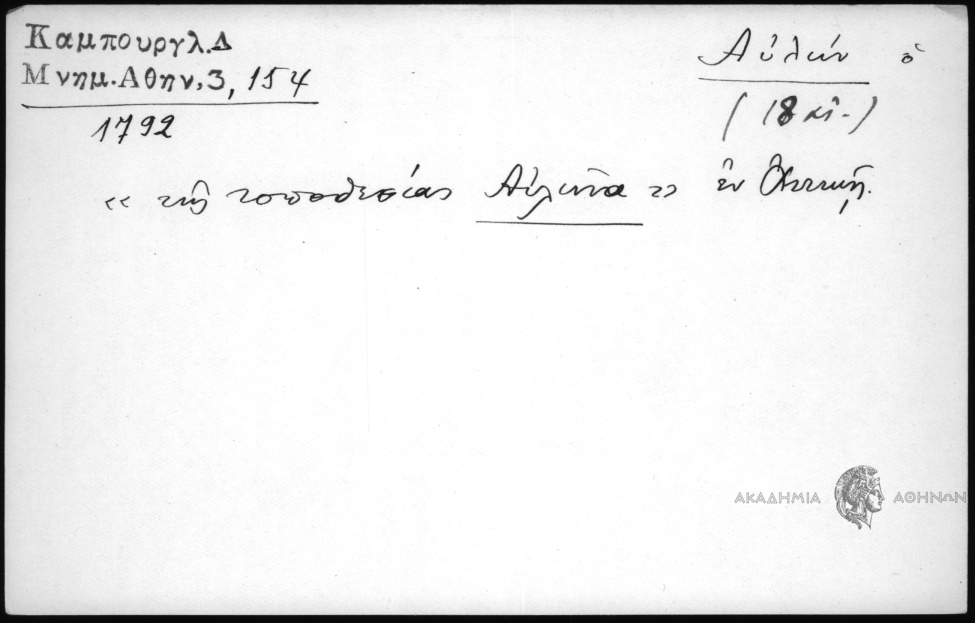 Καμπουργλ.Δ
Μνημ.Αθην.3, 154
1792
Αὐλών ὁ
(18 αἰ.)
« τῆς τοποθεσίας Αὐλῶνα » ἐν Ἀττικῇ.
ΑΚΑΔΗΜΙΑ ΑΘΗΝΩΝ